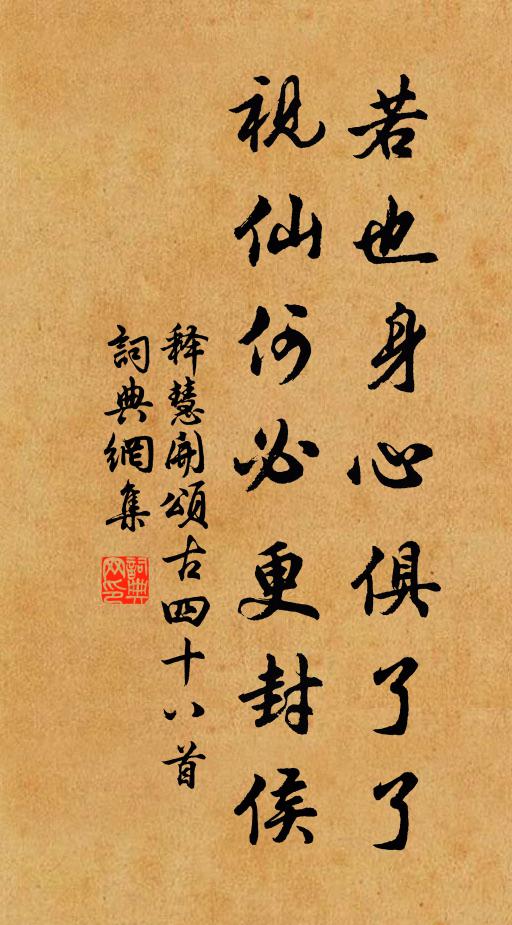 若也身心俱了了
視仙何必更封侯
释慧開頌古四十八首
詞典網集
詞典网印